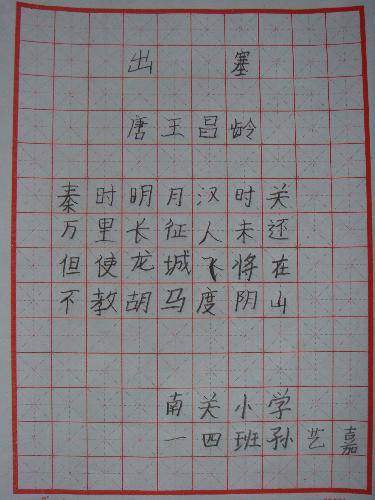 出塞
唐王昌龄
秦时明月汉时关
万里长征人未还
但使龙城飞将在
不教胡马度阴山
南关小学
一四班孙艺嘉